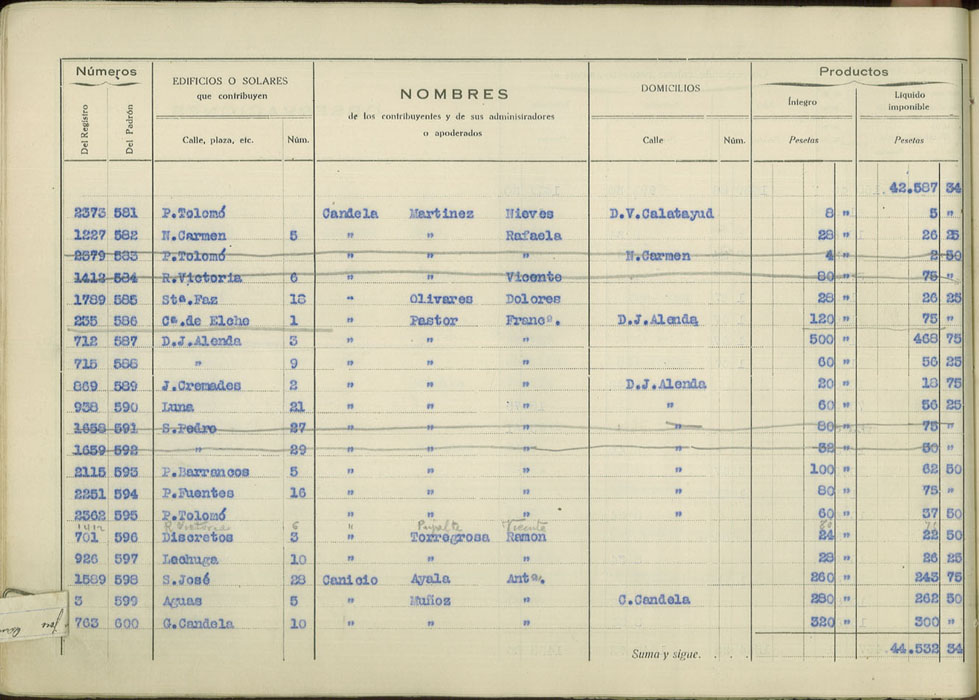 Números
EDIFICIOS O SOLARES
que contribuyen
NOMBRES
de los contribuyentes y de sus administradores
o apoderados
DOMICILIOS
Productos
Íntegro
Líquido
imponible
Del Registro
Del Padrón
Calle, plaza, etc.
Núm.
Calle
Núm.
Pesetas
Pesetas
42.587 34
2373 581 P.Tolomó Candela Martinez Nieves D.V.Calatayud 8 " 5 "
1227 582 N.Carmen 5 " " Rafaela 28 " 26 25
2379 583 P.Tolomó " " " N.Carmen 4 " 2 50
1412 584 R.Victoria 6 " " Vicente 80 " 75 "
1789 585 Stª.Faz 18 " Olivares Dolores 28 " 26 25
235 586 Cª.de Elche 1 " Pastor Francº. D.J.Alenda 120 " 75 "
712 587 D.J.Alenda 3 " " " 500 " 468 75
715 588 " 9 " " " 60 " 56 25
869 589 J.Cremades 2 " " " D.J.Alenda 20 " 18 75
938 590 Luna 21 " " " " 60 " 56 25
1658 591 S.Pedro 27 " " " " 80 " 75 "
1659 592 " 29 " " " " 32 " 30 "
2115 593 P.Barrancos 5 " " " " 100 " 62 50
2251 594 P.Fuentes 16 " " " " 80 " 75 "
2362 595 P.Tolomó " " " " 60 " 37 50
1412 R Victoria 6 " Vicente 80
701 596 Discretos 3 " Torregrosa Ramon 24 " 22 50
926 597 Lechuga 10 " " " 28 " 26 25
1589 598 S.José 28 Canicio Ayala Antº. 260 " 243 75
3 599 Aguas 5 " Muñoz " C.Candela 280 " 262 50
763 600 G.Candela 10 " " " 320 " 300 "
Suma y sigue. 44.532 34